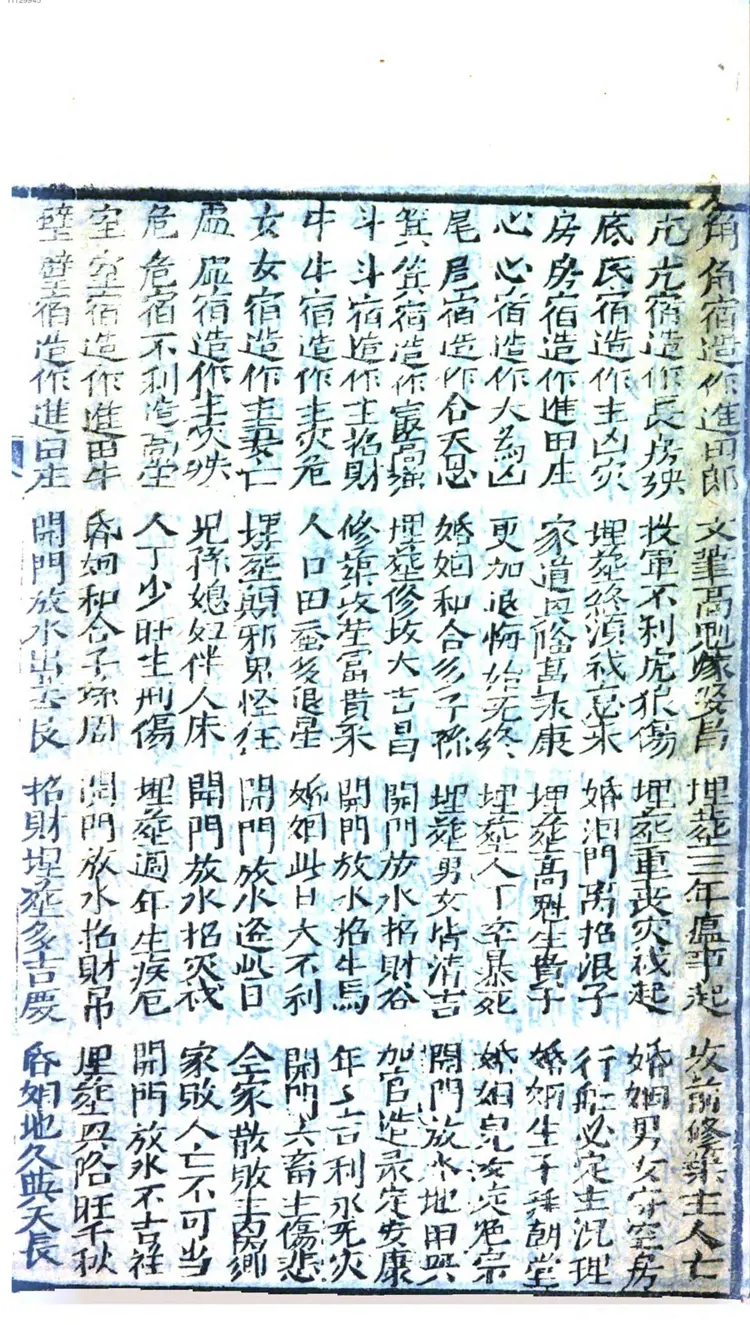 角 角宿造作進田郎 文筆高魁嫁娶昌 埋葬三年瘟事起 坟前修築主人亡
亢 亢宿造作長房殃 投軍不利虎狼傷 埋葬重喪災伐起 婚姻男女守空房
底 氏宿造作主凶灾 埋葬終須伐 來 婚洞門离招浪子 行船必定主沉埋
房 房宿造作進田庄 家道興隆萬永康 埋葬高魁生貴子 婚姻生子拜朝堂
心 心宿造作大為凶 更加退悔始无終 埋葬人丁卒暴死 婚姻兒女灾绝宗
尾 尾宿造作合天恩 婚姻和合多子孫 埋葬男女皆清吉 開門放水地田興
箕 箕宿造作最高強 埋葬修坟大吉昌 開門放水招財谷 加官進录定安康
斗 斗宿造作主招財 修築收葬富貴來 開門放水招牛馬 年年吉利永无灾
牛 牛宿造作主灾危 人口田蚕多退 婚姻此日大不利 開門六畜主傷悲
女 女宿造作主妻亡 埋葬顛邪鬼怪狂 開門放水逢此日 全家散敗主离鄉
虛 虛宿造作主灾殃 兒孫媳妇伴人床 開門放水招灾伐 家敗人亡不可当
危 危宿不利造高堂 人丁少旺生刑傷 埋葬週年生疾厄 開門放水不吉祥
室 室宿造作進田牛 昏姻和合子孫周 開門放水招財帛 埋葬興隆旺千秋
壁 壁宿造作進田庄 開門放水出 長 招財埋葬多吉慶 昏姻地久與天長